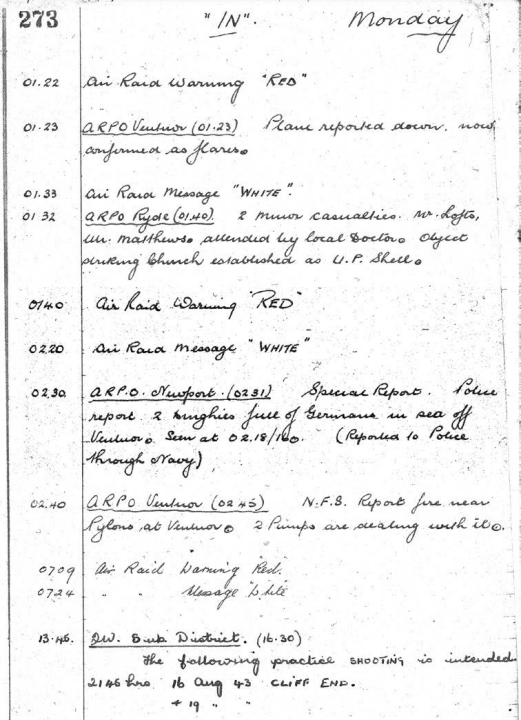 273 "IN". Monday
01.22 Air Raid Warning "RED"
01.23 ARPO Ventnor (01.23) Plane reported down. now
confirmed as flares.
01.33 Air Raid Message "WHITE".
01 32 ARPO Ryde (01.40). 2 minor casualties. Mr. Lofts,
Mr. Matthews. attended by local Doctor. Object
striking Church established as U.P. Shell.
0140 Air Raid Warning "RED"
02.20 Air Raid Message "WHITE"
02.30 A.R.P.O. Newport. (0231) Special Report. Police
report 2 dinghies full of Germans in sea off
Ventnor. Seen at 02.18/160. (Reported to Police
through Navy)
02.40 ARPO Ventnor (02.45) N.F.S. Report fire near
Pylons, at Ventnor. 2 Pumps are dealing with it.
0709 Air Raid Warning Red.
0724 " " Message White
13.45. Sub District. (16.30)
The following practice SHOOTING is intended
2145 hrs 16 Aug 43 CLIFF END.
+ 19 " "